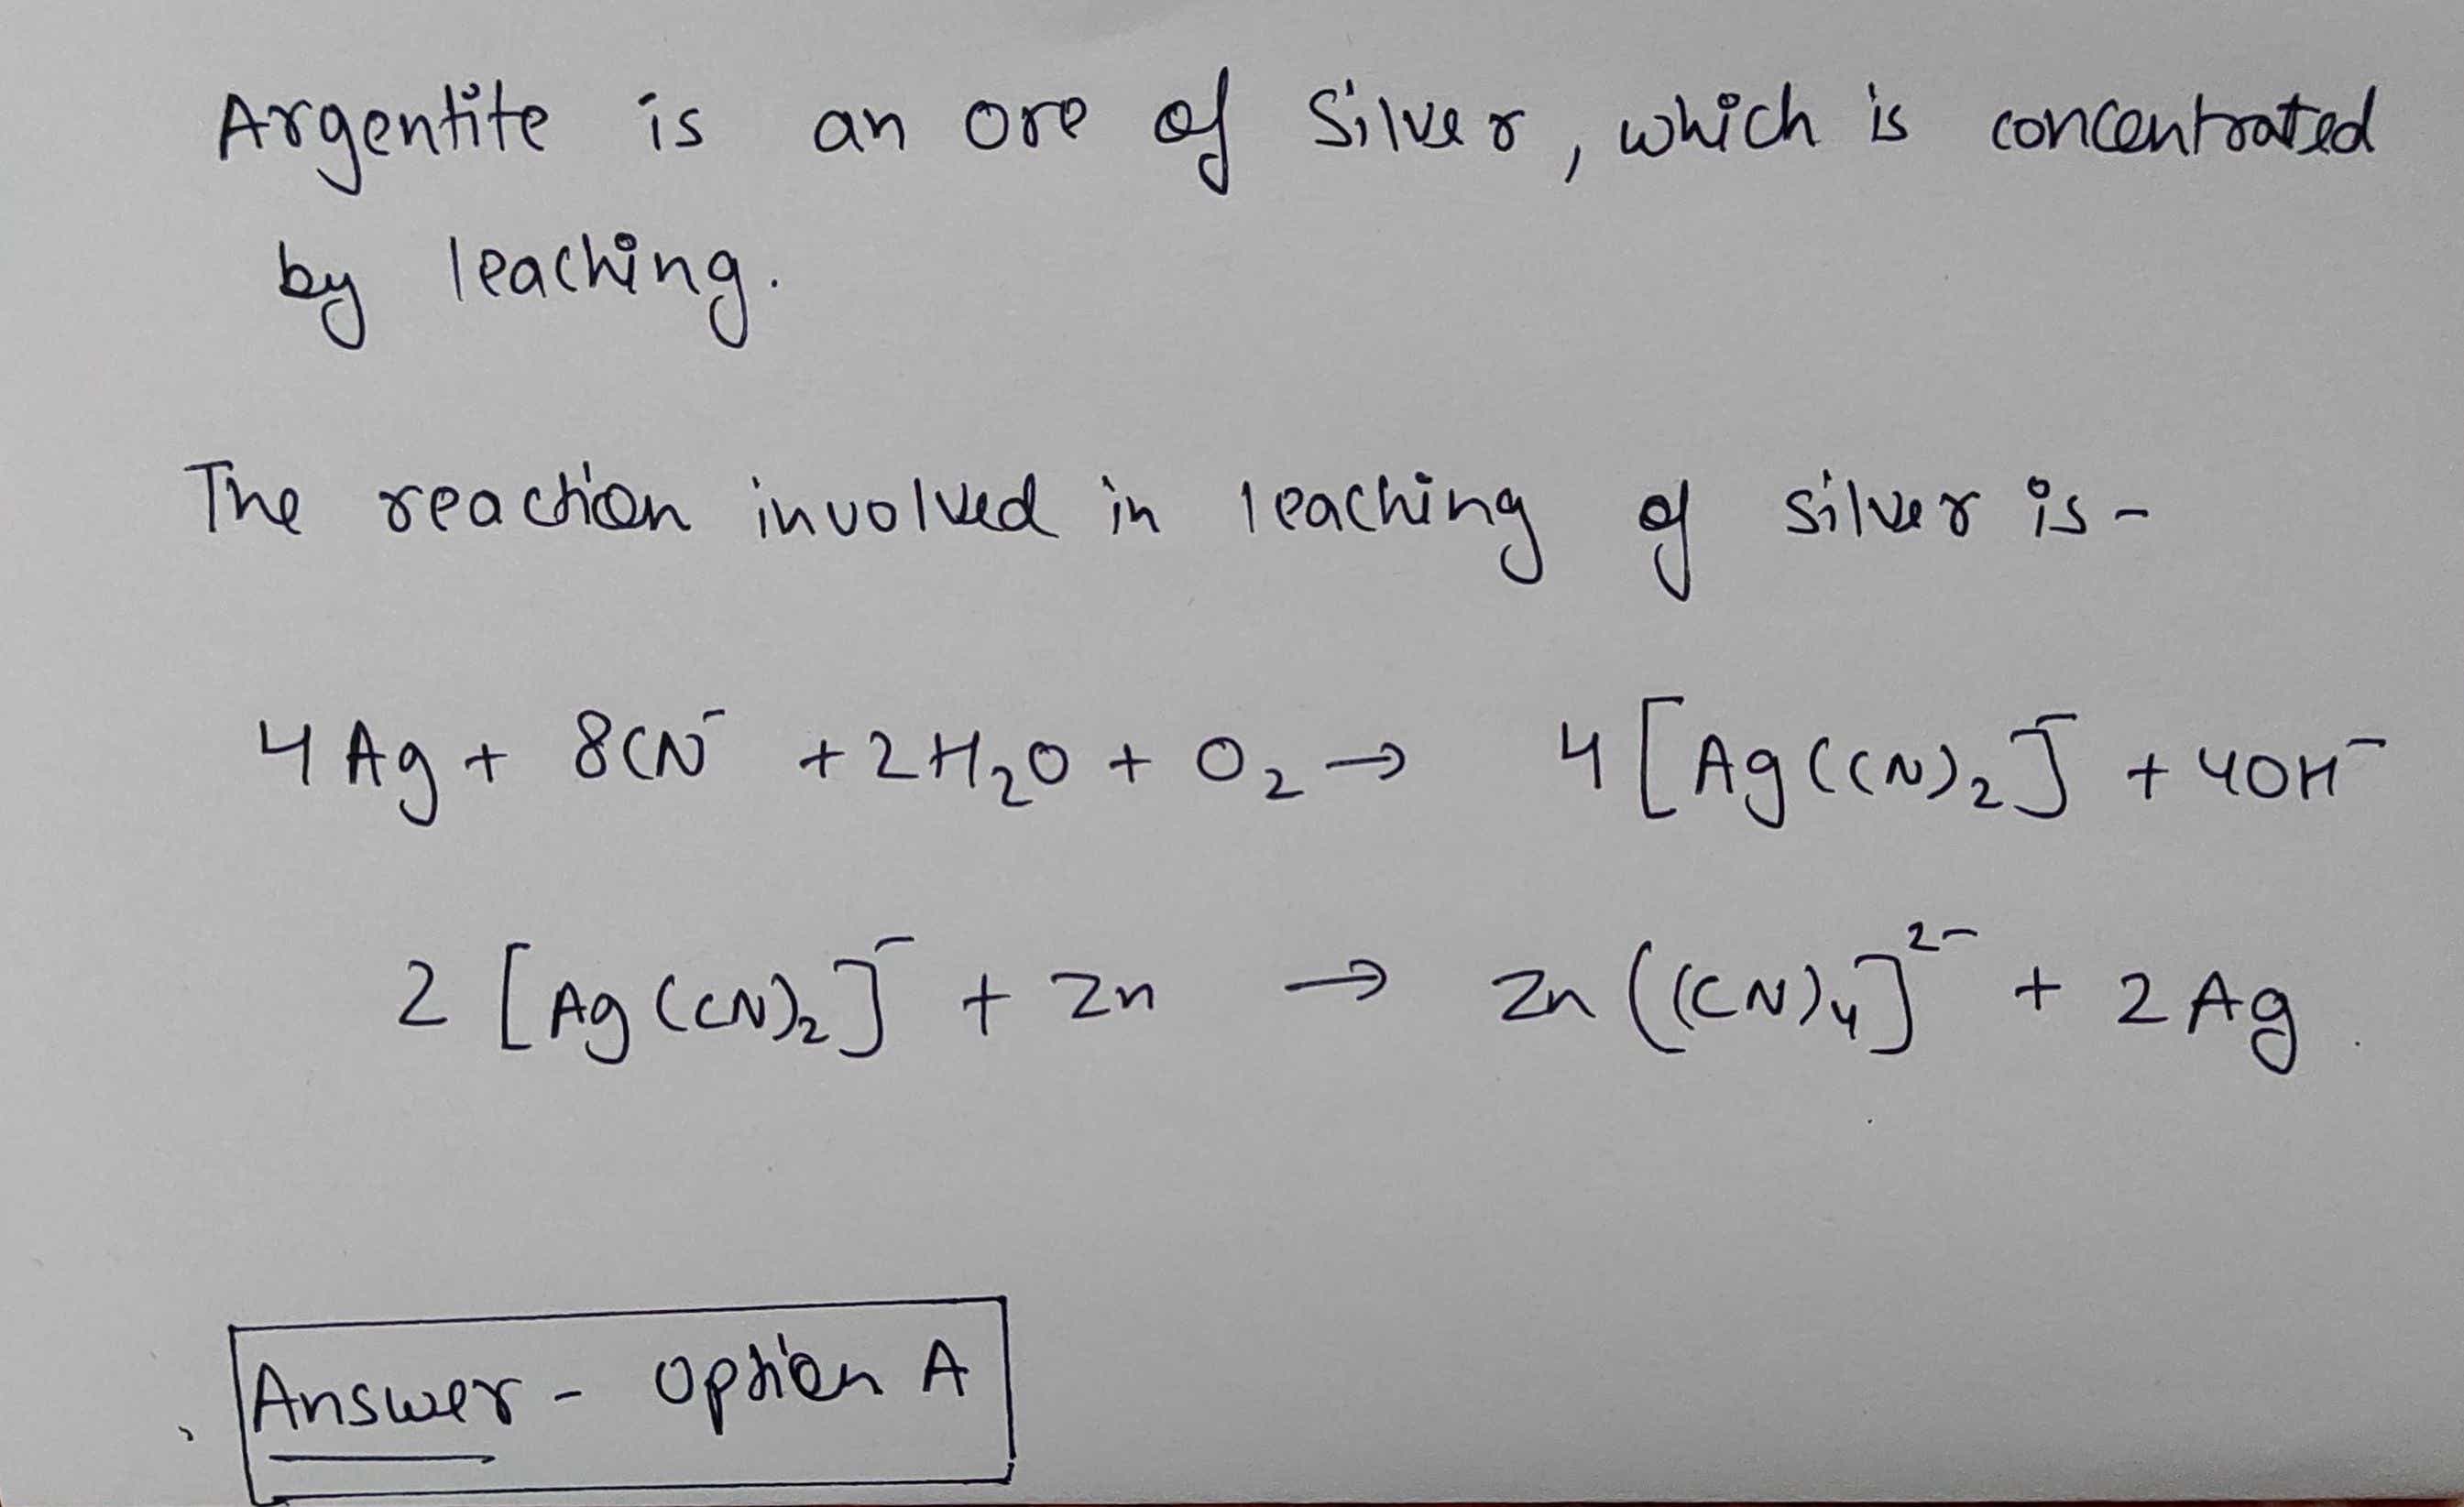 Argentite is an ore of Silver, which is concentrated
by leaching.
The reaction involved in leaching of silver is -
4 Ag + 8CN⁻ + 2H₂O + O₂ → 4 [Ag(CN)₂]⁻ + 4OH⁻
2 [Ag(CN)₂]⁻ + Zn → Zn ((CN)₄]²⁻ + 2 Ag.
Answer - Option A